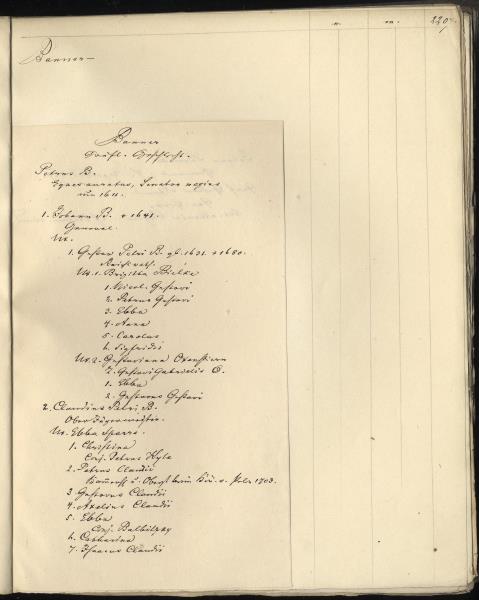 220.
Banner
Banner
Petrus B.
Eques auratus, Senator regius
um 1611.
1. Johann B. + 1641.
General.
Ux.
1. Gustav Petri B. gb. 1631. + 1680.
Reichsrath.
Ux. 1. Brigitta Bielke
1. Nicol. Gustavi
2. Petrus Gustavi
3. Ebba
4. Anna
5. Carolus
6. Sigfridus
Ux. 2. Gustaviana Oxenstiern
F. Gustavi Gabrielis O.
1. Ebba
2. Gustavus Gustavi
2. Claudius Petri B.
Ober Jägermeister.
Ux. Ebba Sparre.
1. Christina
Conj. Petrus Kyle
2. Petrus Claudii
1703.
3 Gustavus Claudii
4. Axelius Claudii
5. Ebba
Conj.
6. Catharina
7. Isaacus Claudii